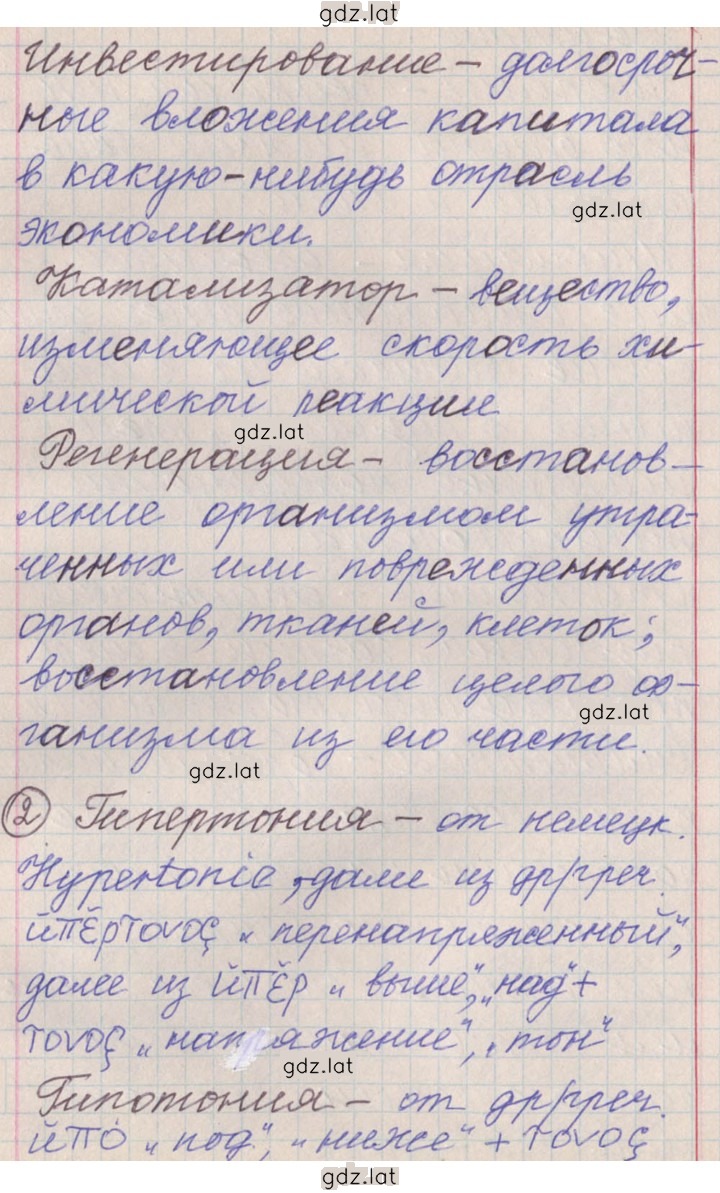 gdz.lat
Инвестирование – долгосроч-
ные вложения капитала
в какую-нибудь отрасль
gdz.lat
экономики.
Катализатор – вещество,
изменяющее скорость хи-
мической реакции
gdz.lat
Регенерация – восстанов-
ление организмом утра-
ченных или поврежденных
органов, тканей, клеток;
восстановление целого ор-
gdz.lat
ганизма из его части.
gdz.lat
② Гипертония – от немецк.
Hypertonie, дали из др/греч.
ὑπέρτονος „перенапряженный",
далее из ὑπέρ „выше", „над" +
τονος „напряжение", „тон"
gdz.lat
Гипотония – от др/греч.
ὑπό „под", „ниже" + τονος
gdz.lat